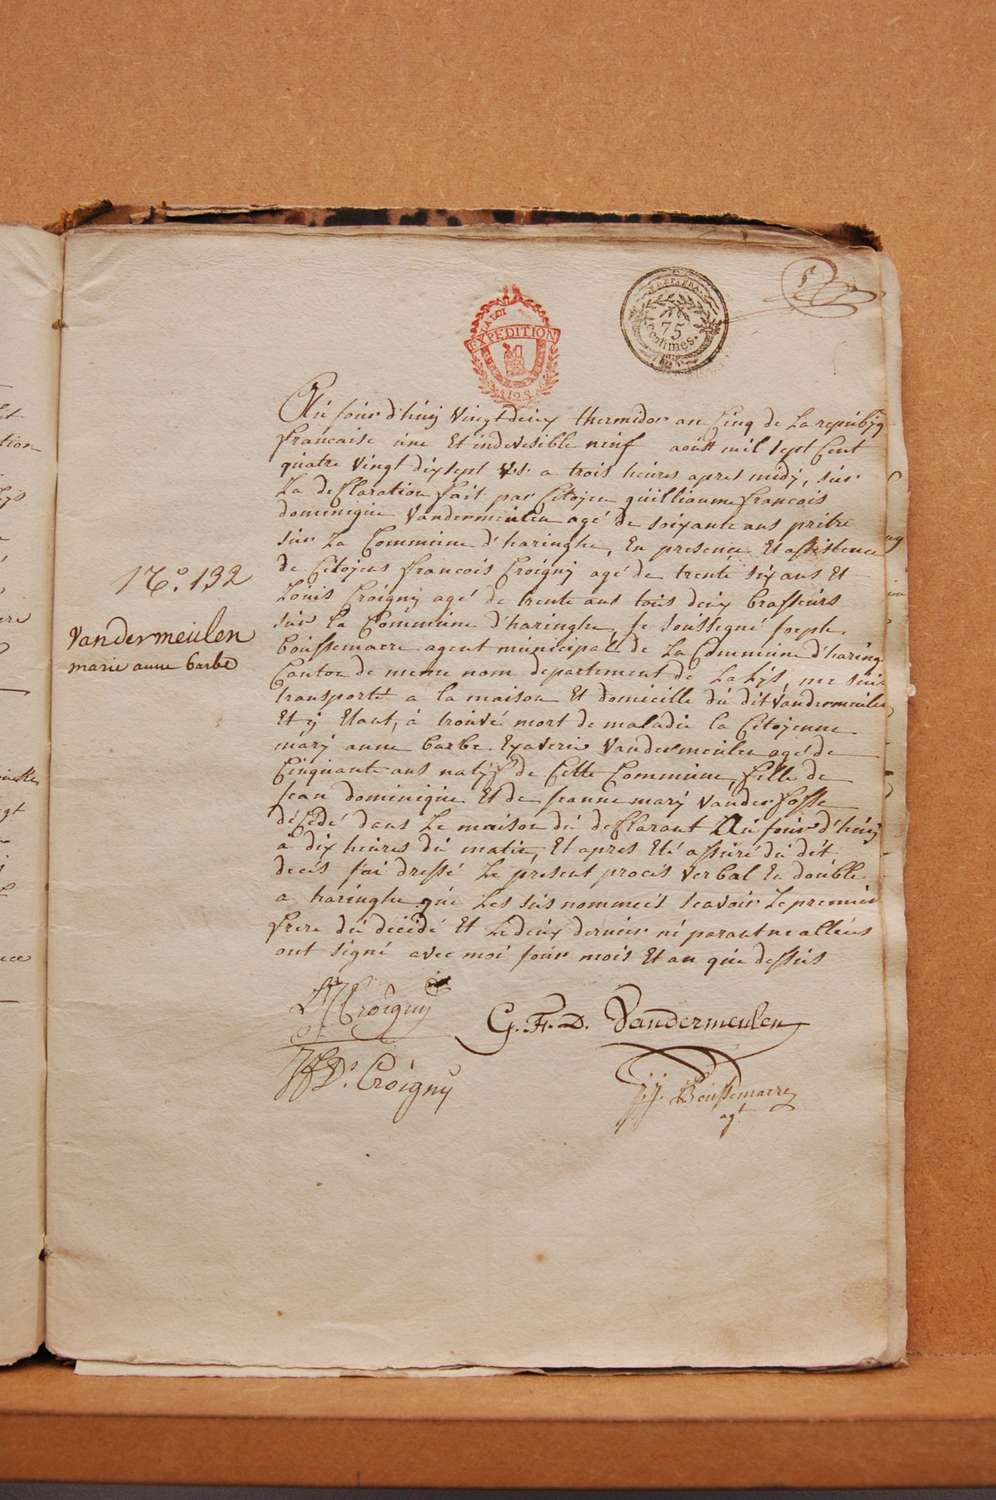 LA LOI
EXPEDITION
128
75
centimes.
5
Au jour d'huij vingt deux thermidor an Cinq de La republiq
francaise une Et indevisible neuf aoüst mil sept Cent
quatre vingt dix sept v.s. a trois heures apres midÿ, sur
La deClaration fait par Citoÿen guilliaume francois
dominique Vandermeulen agé de soixante ans pritre
sur La Commune d'haringhe, En presence Et assistence
de Citoÿens francois Croignÿ agé de trente six ans Et
Loüis Croignÿ agé de trente ans tois deux brasseurs
sur la Commune d'haringhe, Je soussegné Joseph
boussemaere agent municipal de La Commune d'haring
Canton de meme nom departement de La Lÿs, me suis
transporté a la maison Et domicille du dit vandermeulen
Et ÿ Etant, à trouvé mort de maladie la Citoÿenne
marÿ anne barbe Exaverie Vandermeulen agé de
Cinquante ans natif de Cette Commune, fille de
Jean dominique Et de Jeanne marÿ Vanderfosse
déCédé dans Le maison du deClarant Au jour d'huij
à dix heures du matin, Et apres Eté assuré du dét
deces J'ai dressé Le present procés verbal En double
a haringhe que Les sus nommeés scavoir Le premier
frere du décidé Et Le deux dernier né parant ne alliéus
ont signé avec moi jour mois Et an que dessus
N.o 132
Vandermeulen
marie anne barbe
Croignÿ
G. F. D. Vandermeulen
Croignÿ
J. J. Boussemaere
agt